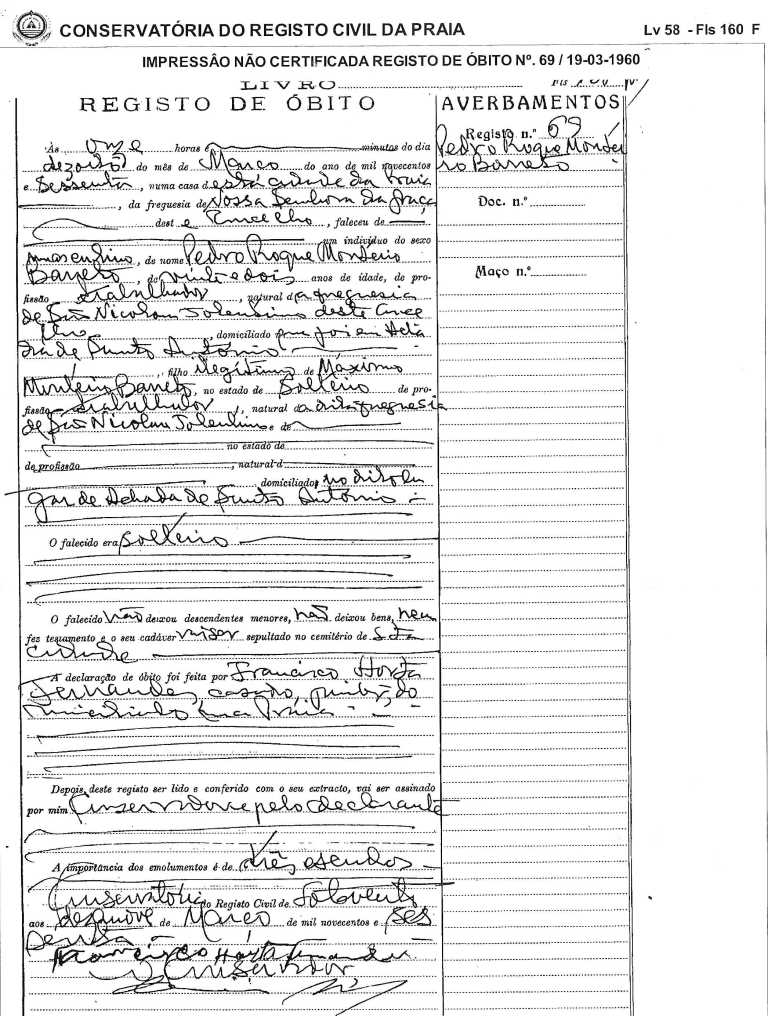 CONSERVATÓRIA DO REGISTO CIVIL DA PRAIA Lv 58 - Fls 160 F
IMPRESSÂO NÃO CERTIFICADA REGISTO DE ÓBITO Nº. 69 / 19-03-1960
LIVRO
REGISTO DE ÓBITO
Às onze horas e minutos do dia
dezoito do mês de Março do ano de mil novecentos
e sessenta, numa casa desta cidade da Praia
, da freguesia de Nossa Senhora da Graça
deste Concelho, faleceu de
um indivíduo do sexo
masculino, de nome Pedro Roque Monteiro
Barreto, de vinte e dois anos de idade, de pro-
fissão trabalhador, natural da freguesia
de São Nicolau Tolentino deste Conce
lho, domiciliado que foi em Acha
da de Santo António
, filho ilegítimo de Máximo
Monteiro Barreto, no estado de solteiro de pro-
fissão trabalhador, natural da dita freguesia
de São Nicolau Tolentino e de
no estado de
de profissão , natural d
domiciliados no dito lu
gar de Achada de Santo António
O falecido era solteiro
O falecido não deixou descendentes menores, não deixou bens, nem
fez testamento e o seu cadáver vai ser sepultado no cemitério de
cidade
A declaração de óbito foi feita por Francisco Horta
Fernandes, casado, do
miciliado na Praia
Depois deste registo ser lido e conferido com o seu extracto, vai ser assinado
por mim Conservador e pelo declarante
A importância dos emolumentos é de três escudos
Conservatória do Registo Civil de Sotavento
aos dezanove de Março de mil novecentos e ses
senta
Francisco Horta Fernandes
O Conservador
AVERBAMENTOS
Registo n.º 69
Pedro Roque Montei
ro Barreto
Doc. n.º
Maço n.º